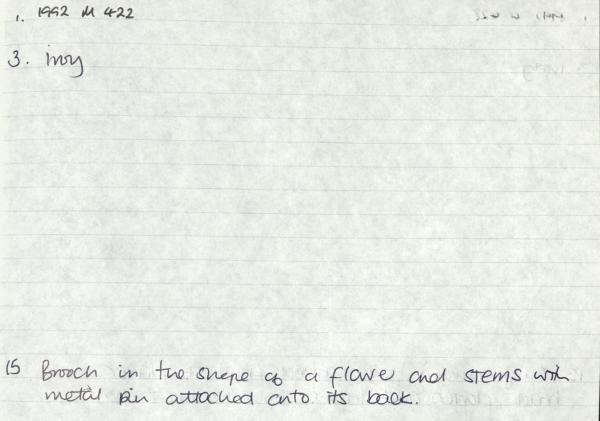 1. 1992 M 422
3. ivory
15 Brooch in the shape of a flower and stems with
metal pin attached onto its back.